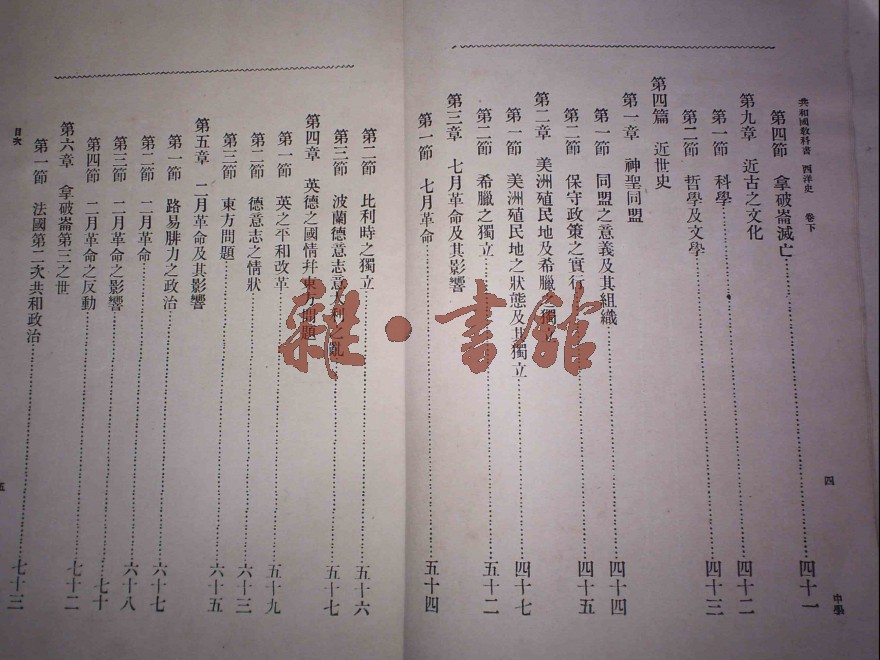 共和國教科書 西洋史 卷下
四
中學
第四節 拿破崙滅亡 四十一
第九章 近古之文化 四十二
第一節 科學
第二節 哲學及文學 四十三
第四篇 近世史
第一章 神聖同盟
第一節 同盟之意義及其組織 四十四
第二節 保守政策之實行 四十五
第二章 美洲殖民地及希臘之獨立
第一節 美洲殖民地之狀態及其獨立 四十七
第二節 希臘之獨立 五十二
第三章 七月革命及其影響
第一節 七月革命 五十四
第二節 比利時之獨立 五十六
第三節 波蘭德意志意大利之亂 五十七
第四章 英德之國情幷東方問題
第一節 英之平和改革 五十九
第二節 德意志之情狀 六十三
第三節 東方問題 六十五
第五章 二月革命及其影響
第一節 路易腓力之政治 六十七
第二節 二月革命 六十八
第三節 二月革命之影響 七十
第四節 二月革命之反動 七十二
第六章 拿破崙第三之世
第一節 法國第二次共和政治 七十三
目次
五
雜·書館